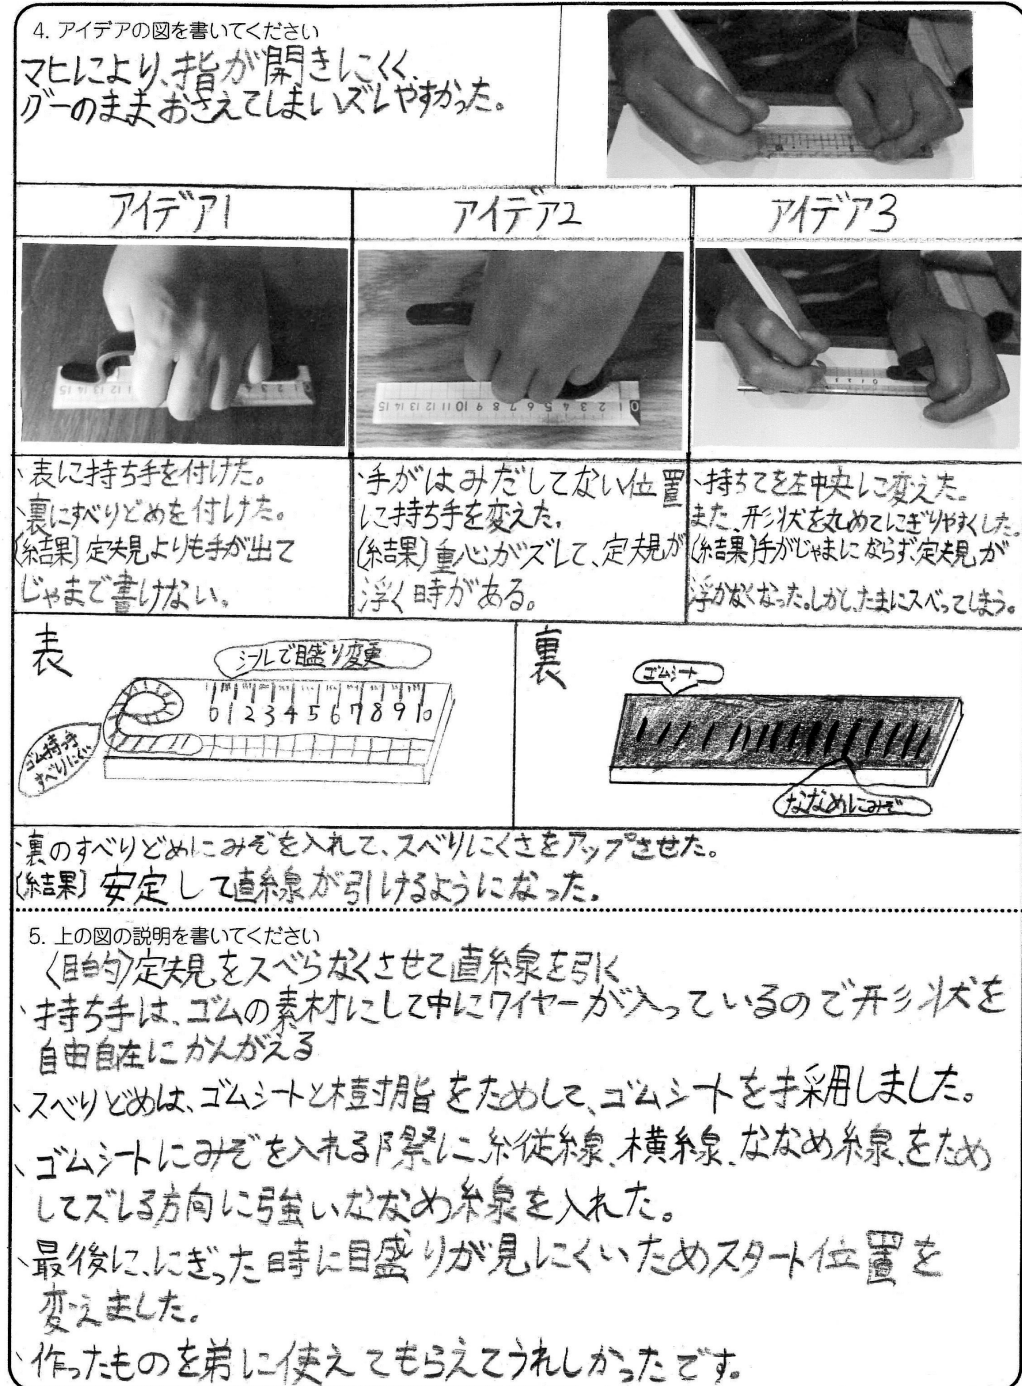 4. アイデアの図を書いてください
マヒにより、指が開きにくく、
グーのまま、おさえてしまいズレやすかった。
アイデア1
アイデア2
アイデア3
、表に持ち手を付けた。
、裏にすべりどめを付けた。
〔結果〕定規よりも手が出て
じゃまで書けない。
・手がはみだしてない位置
に持ち手を変えた。
〔結果〕重心がズレて、定規が
浮く時がある。
、持ちてを左中央に変えた。
また、形状を丸めてにぎりやすくした。
〔結果〕手がじゃまにならず、定規が
浮かなくなった。しかし、たまにスベってしまう。
表
シールで目盛り変更
0 1 2 3 4 5 6 7 8 9 10
ゴム持ち手
すべりにくい
裏
ゴムシート
ななめにみぞ
・裏のすべりどめにみぞを入れて、スベりにくさをアップさせた。
〔結果〕安定して直線が引けるようになった。
5. 上の図の説明を書いてください
〈目的〉定規をスベらなくさせて直線を引く
、持ち手は、ゴムの素材にして中にワイヤーが入っているので形状を
自由自在にかんがえる
、スベりどめは、ゴムシートと樹脂をためして、ゴムシートを採用しました。
、ゴムシートにみぞを入れる際に、縦線、横線、ななめ線、をため
してズレる方向に強いななめ線を入れた。
、最後に、にぎった時に目盛りが見にくいためスタート位置を
変えました。
、作ったものを弟に使えてもらえてうれしかったです。